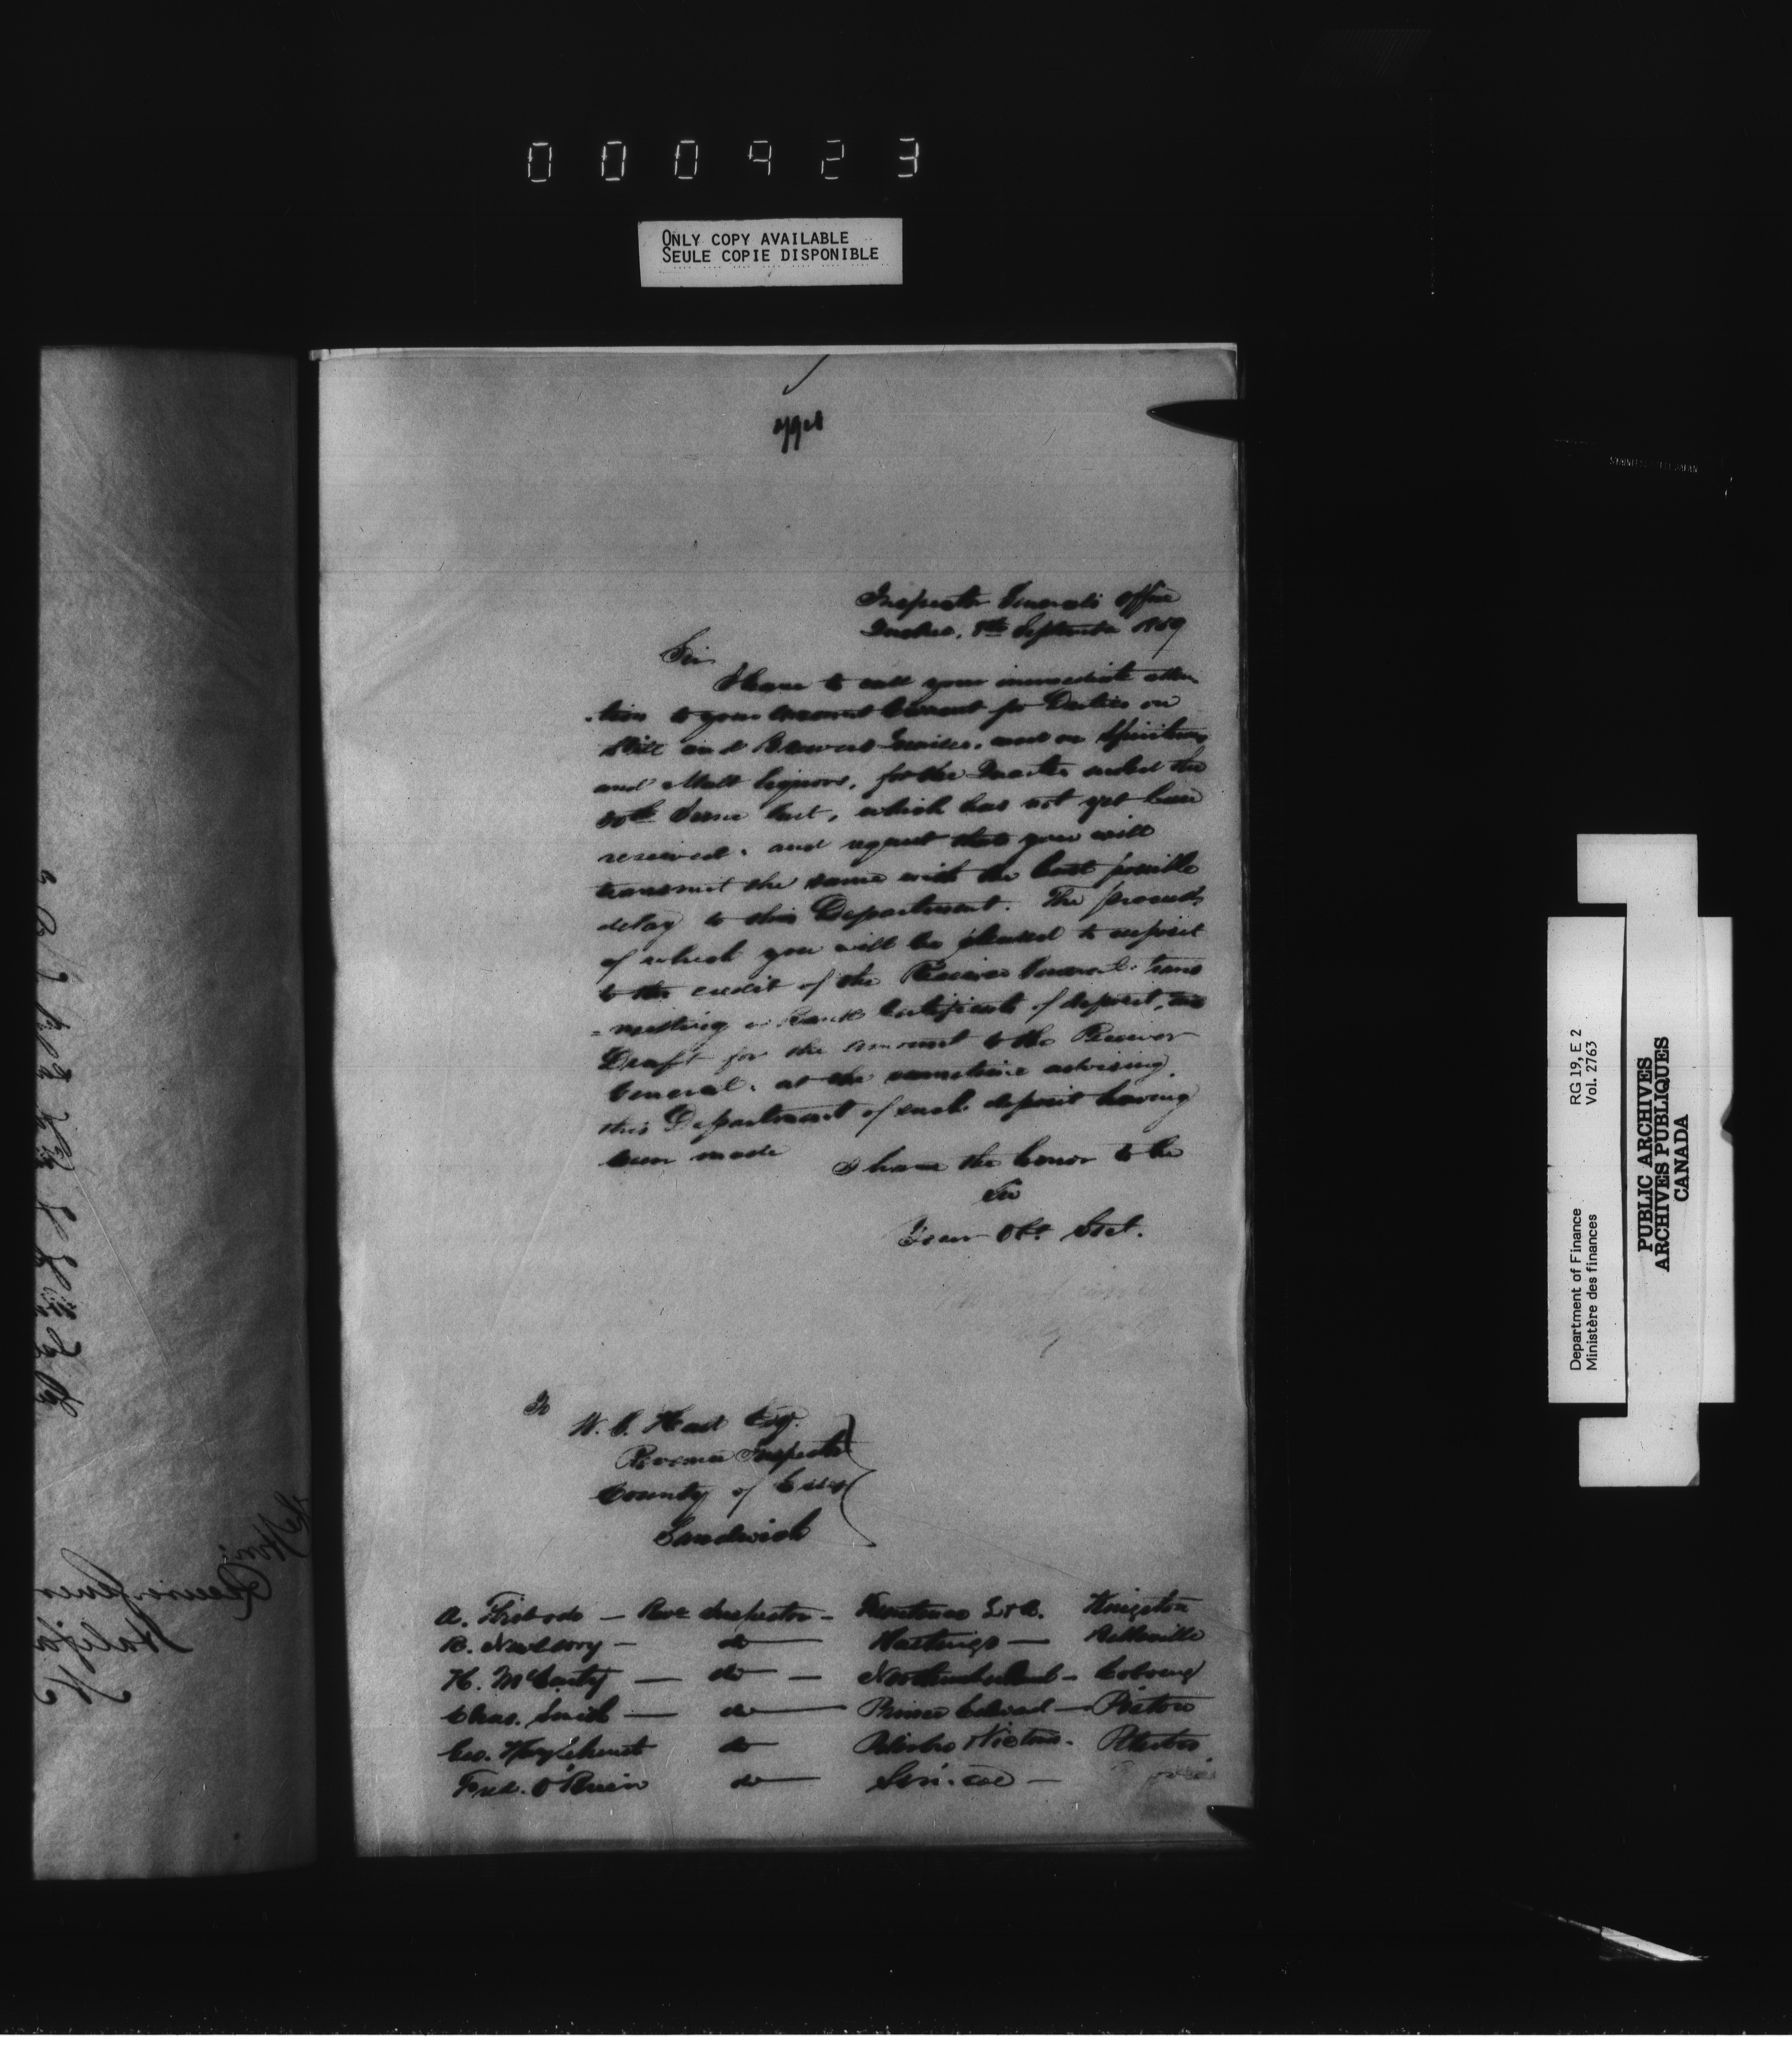 000923
ONLY COPY AVAILABLE
SEULE COPIE DISPONIBLE
Inspector Generals Office
Quebec, 8th September 1859
Sir
I have to call your immediate atten
-tion to your Account Current for Duties on
Still and Brewers Licenses, and on Spirituous
and Malt liquors, for the Quarter ended the
30th June last, which has not yet been
received, and request that you will
transmit the same with the least possible
delay to this Department. The proceeds
of which you will be pleased to deposit
to the credit of the Receiver General, trans
=mitting a Bank Certificate of deposit, or
Draft for the amount to the Receiver
General, at the same time advising
this Department of such deposit having
been made
I have the honor to be
Sir
Your Obt. Sevt.
To
W. Esq.
Revenue Inspector
County of Essex
Sandwich
A. — Rev Inspector — Frontenac L & A. Kingston
R. Newbery — do — Hastings — Belleville
H. McCarty — do — Northumberland — Cobourg
Chas. — do — Prince Edward — Picton
Geo. do Peterbro Victoria. Peterbro
Fred. O'Brien do — Simcoe —
Receiver Gener
Halifax
RG 19, E 2
Vol. 2763
Department of Finance
Ministère des finances
PUBLIC ARCHIVES
ARCHIVES PUBLIQUES
CANADA